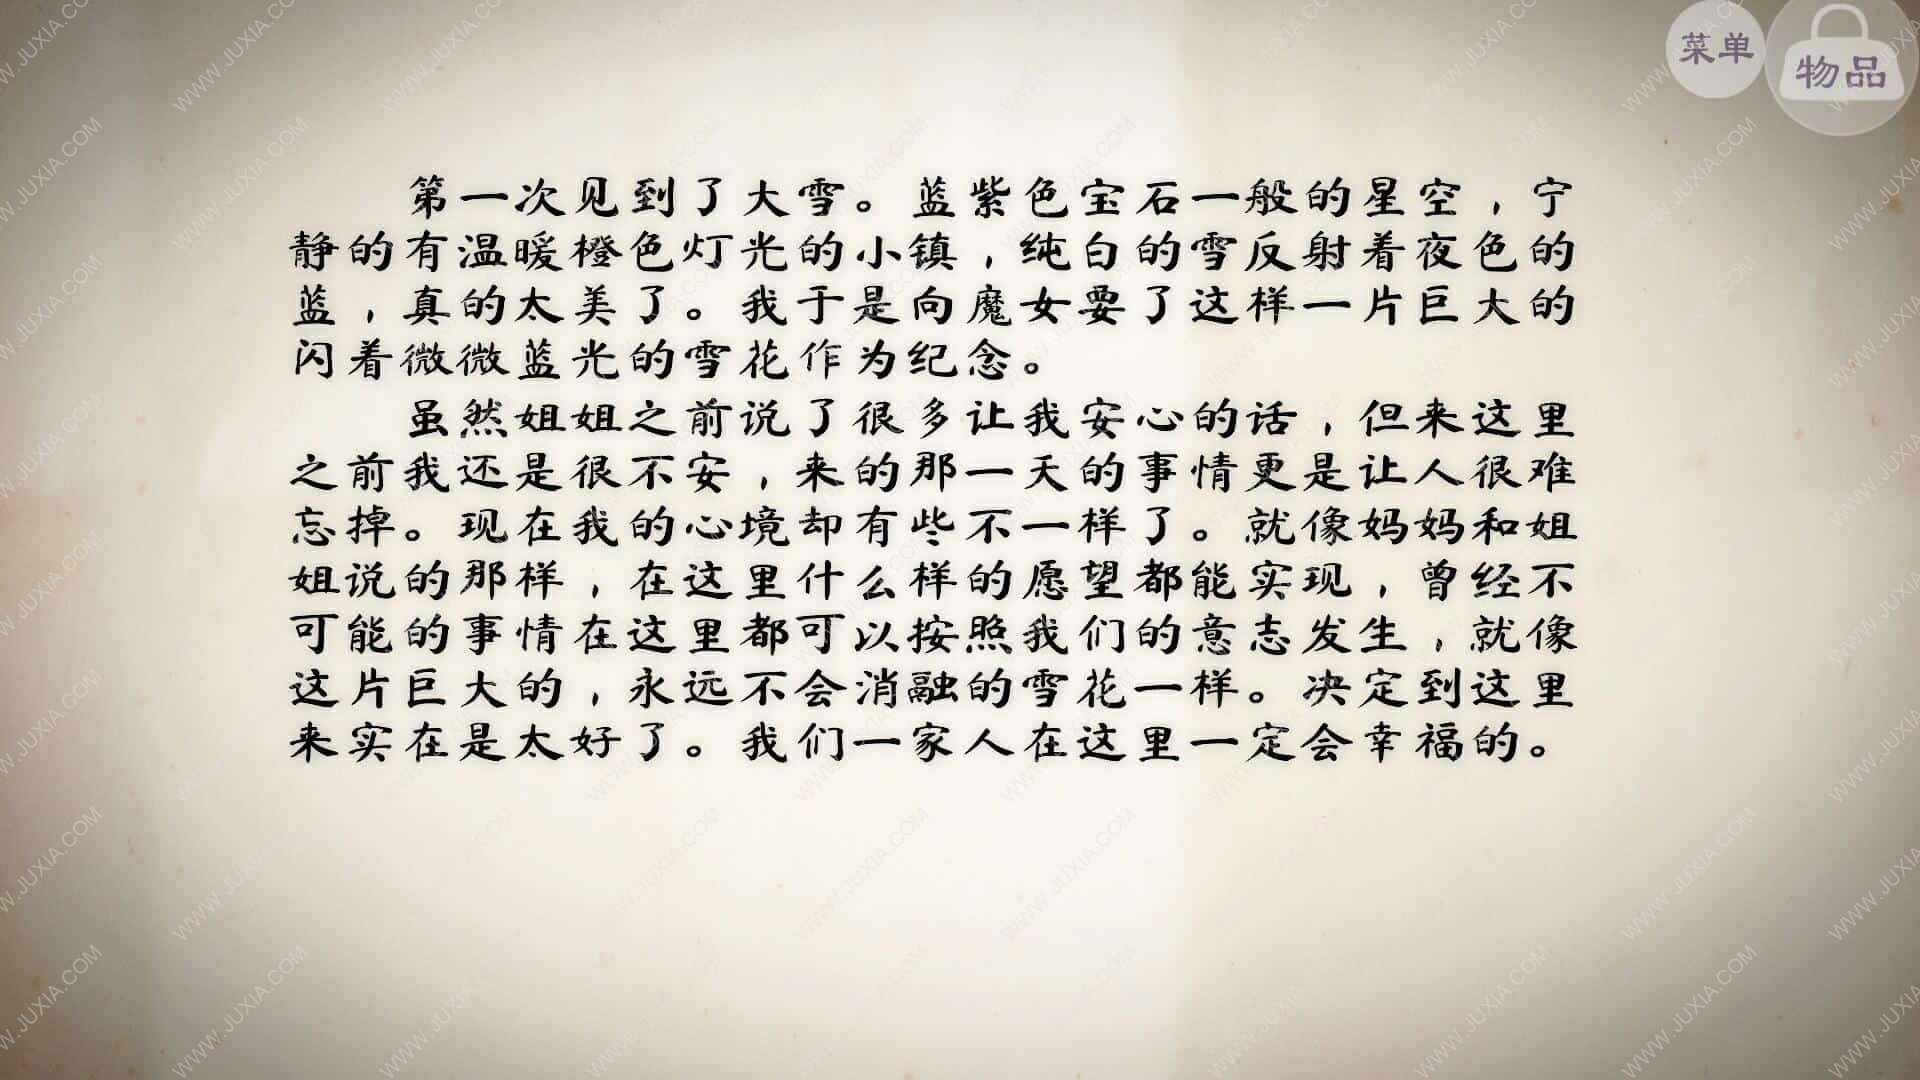 菜单
物品
第一次见到了大雪。蓝紫色宝石一般的星空，宁
静的有温暖橙色灯光的小镇，纯白的雪反射着夜色的
蓝，真的太美了。我于是向魔女要了这样一片巨大的
闪着微微蓝光的雪花作为纪念。
虽然姐姐之前说了很多让我安心的话，但来这里
之前我还是很不安，来的那一天的事情更是让人很难
忘掉。现在我的心境却有些不一样了。就像妈妈和姐
姐说的那样，在这里什么样的愿望都能实现，曾经不
可能的事情在这里都可以按照我们的意志发生，就像
这片巨大的，永远不会消融的雪花一样。决定到这里
来实在是太好了。我们一家人在这里一定会幸福的。
WWW.JUXIA.COM